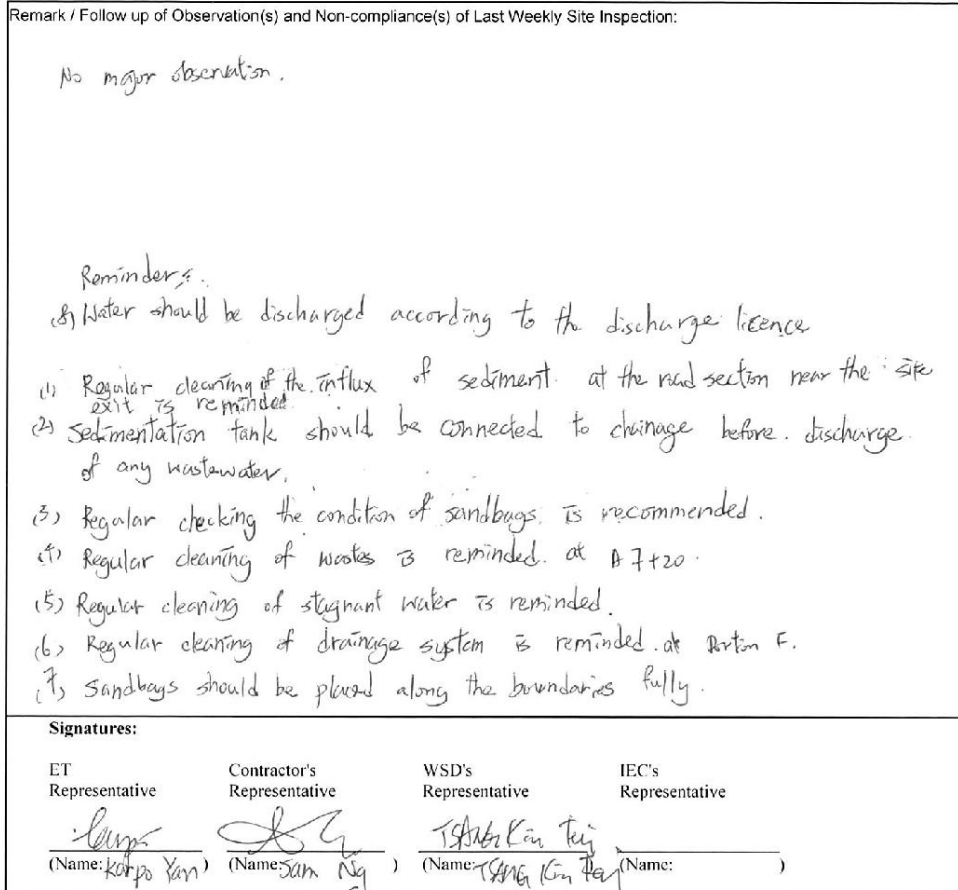 Remark / Follow up of Observation(s) and Non-compliance(s) of Last Weekly Site Inspection:
No major observation.
Reminders:
(8) Water should be discharged according to the discharge licence
(1) Regular cleaning of the influx of sediment at the road section near the site
exit is reminded.
(2) Sedimentation tank should be connected to chainage before discharge
of any wastewater.
(3) Regular checking the condition of sandbags is recommended.
(4) Regular cleaning of wastes is reminded. at A7+20.
(5) Regular cleaning of stagnant water is reminded.
(6) Regular cleaning of drainage system is reminded. at Portion F.
(7) Sandbags should be placed along the boundaries fully.
Signatures:
ET Contractor's WSD's IEC's
Representative Representative Representative Representative
TSANG Kin
(Name: Karpo Yan) (Name: Sam Ng) (Name: TSANG Kin) (Name: )